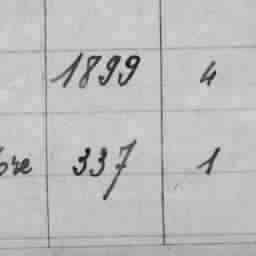 1899 4
337 1